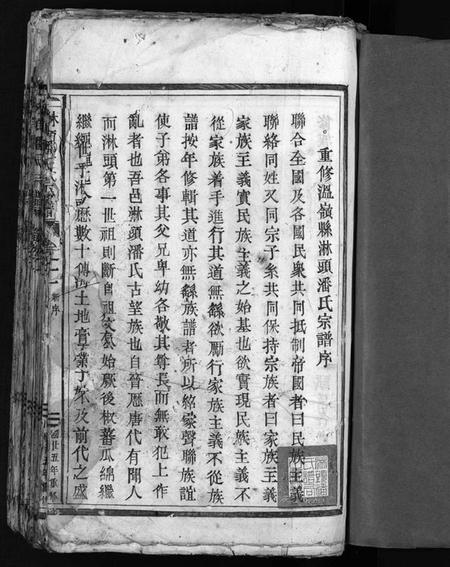 重修溫嶺縣淋頭潘氏宗譜序
聯合全國及各國民衆共同抵制帝國者曰民族主義
聯絡同姓及同宗子系共同保持宗族者曰家族主義
家族主義實民族主義之始基也欲實現民族主義不
從家族着手進行其道無繇欲勵行家族主義不從族
譜按年修輯其道亦無繇族譜者所以綿家聲聯族誼
使子弟各事其父兄卑幼各敬其尊長而無敢犯上作
亂者也吾邑淋頭潘氏古望族也自晉歷唐代有聞人
而淋頭第一世祖則斷自祖 始厥後椒蕃瓜綿繼
繼繩 歷數十傳 土地膏 業 及前代之盛
新序
國廿五年重修